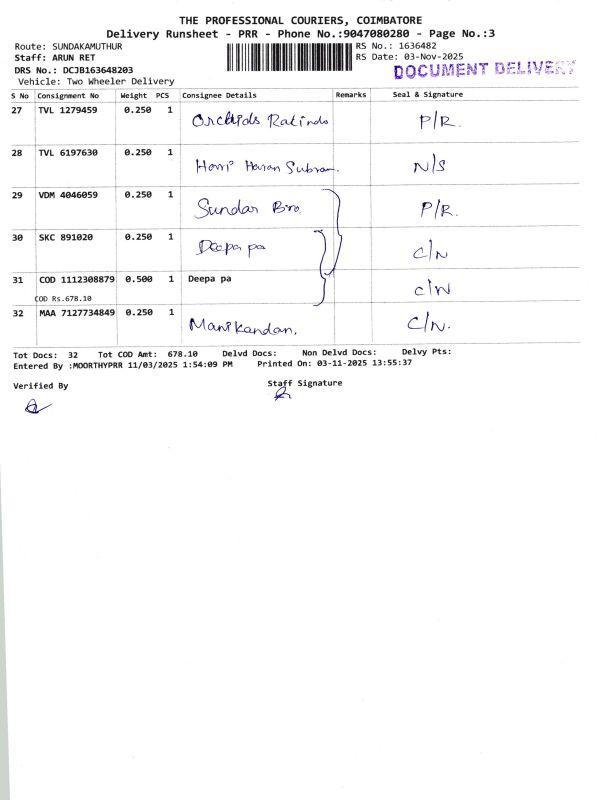 THE PROFESSIONAL COURIERS, COIMBATORE
Delivery Runsheet - PRR - Phone No.:9047080280 - Page No.:3
Route: SUNDAKAMUTHUR
RS No.: 1636482
Staff: ARUN RET
RS Date: 03-Nov-2025
DRS No.: DCJB163648203
DOCUMENT DELIVERY
Vehicle: Two Wheeler Delivery
S No Consignment No Weight PCS Consignee Details Remarks Seal & Signature
27 TVL 1279459 0.250 1 Orchids P/R.
28 TVL 6197630 0.250 1 Hari Haran Subram. N/S
29 VDM 4046059 0.250 1 Sundar Bro. P/R.
30 SKC 891020 0.250 1 Deepa pa C/N
31 COD 1112308879 0.500 1 Deepa pa C/N
COD Rs.678.10
32 MAA 7127734849 0.250 1 Manikandan. C/N.
Tot Docs: 32 Tot COD Amt: 678.10 Delvd Docs: Non Delvd Docs: Delvy Pts:
Entered By :MOORTHYPRR 11/03/2025 1:54:09 PM Printed On: 03-11-2025 13:55:37
Verified By Staff Signature